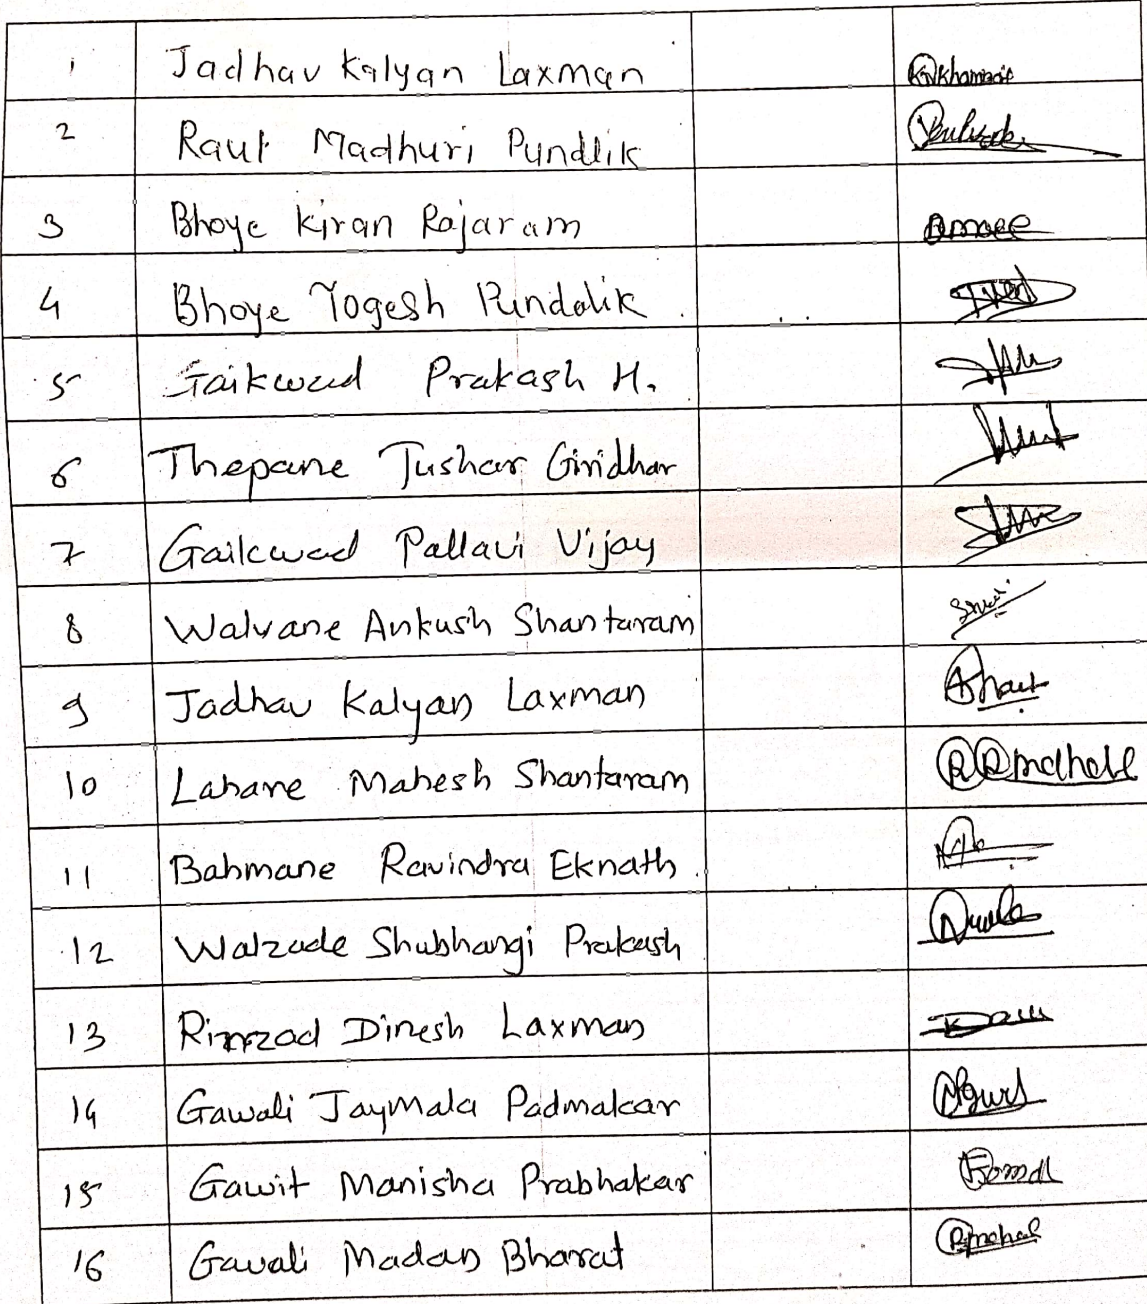 1 Jadhav Kalyan Laxman
2 Raut Madhuri Pundlik
3 Bhoye Kiran Rajaram
4 Bhoye Yogesh Pundalik
5 Gaikwad Prakash H.
6 Thepane Tushar Giridhar
7 Gaikwad Pallavi Vijay
8 Walvane Ankush Shantaram
9 Jadhav Kalyan Laxman
10 Lahane Mahesh Shantaram
11 Bahmane Ravindra Eknath
12 Walzade Shubhangi Prakash
13 Rinzad Dinesh Laxman
14 Gawali Jaymala Padmakar
15 Gawit Manisha Prabhakar
16 Gavali Madan Bharat